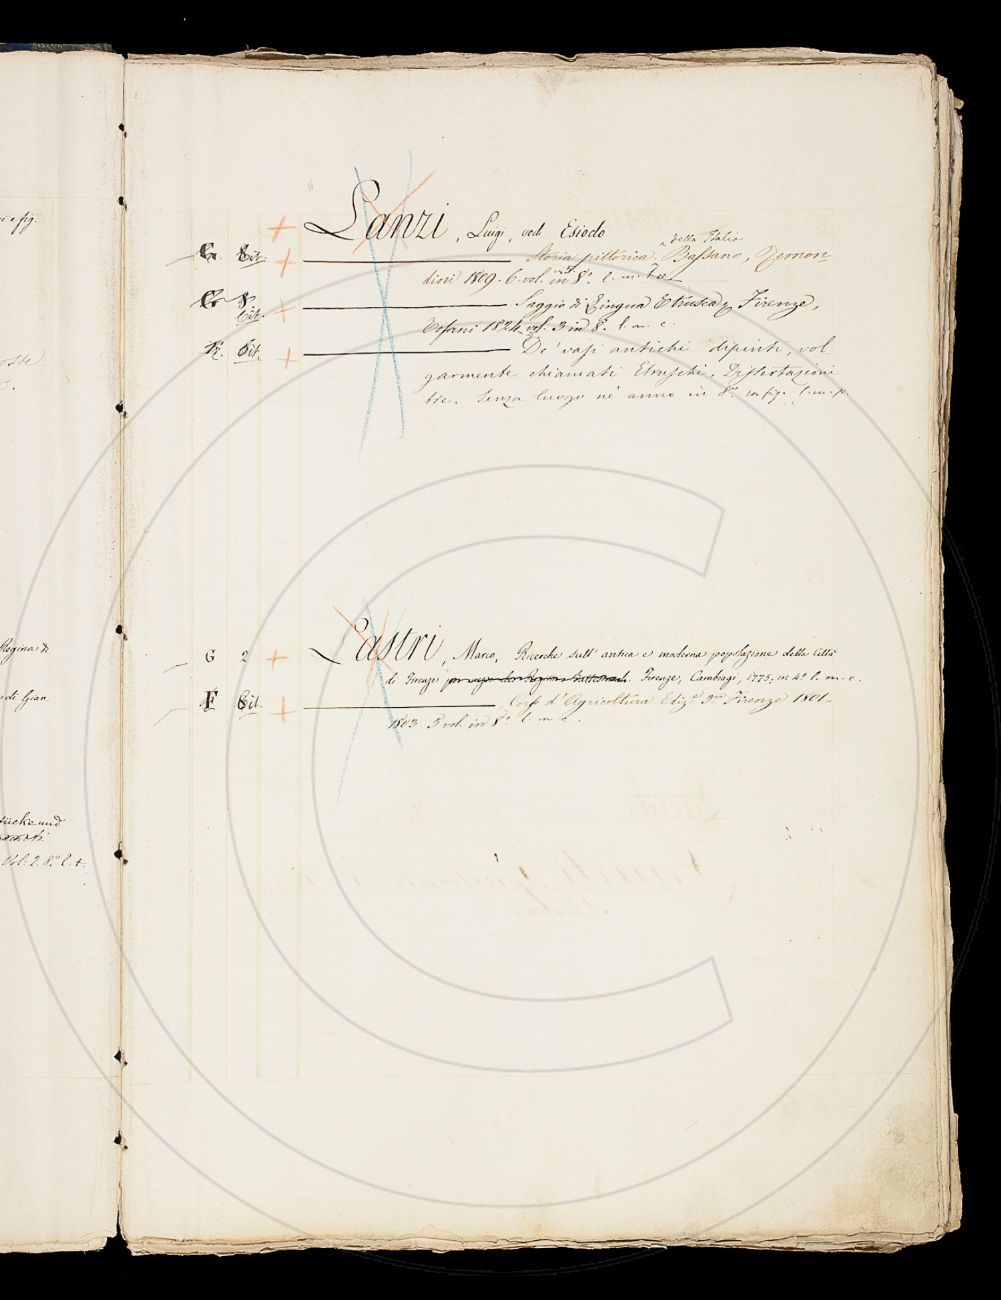 e fig.
Lanzi, Luigi, vedi Esiodo
Cit. Storia pittorica della Italia Bassano, Remon
dini 1809. 6. vol. in 8.º l. m.
8. Cit. Saggio di Lingua Etrusca Firenze,
Tofani 1824 vol. 3 in 8. l. m. c.
Cit. De' vasi antichi dipinti, vol
garmente chiamati Etruschi, Dissertazioni
tre. Senza luogo nè anno in 8.º con fig. l. m. p.
Regina di
G 2 Lastri, Marco, Ricerche sull' antica e moderna popolazione della Città
di Firenze Firenze, Cambiagi, 1775, in 4.º l. m. c.
di Gian
F Cit. Corso d'Agricoltura Ediz.e 3.a Firenze 1801-
1803 5 vol. in 8.º l. m. c.
stücke und
Vol. 2. 8.º l. t.